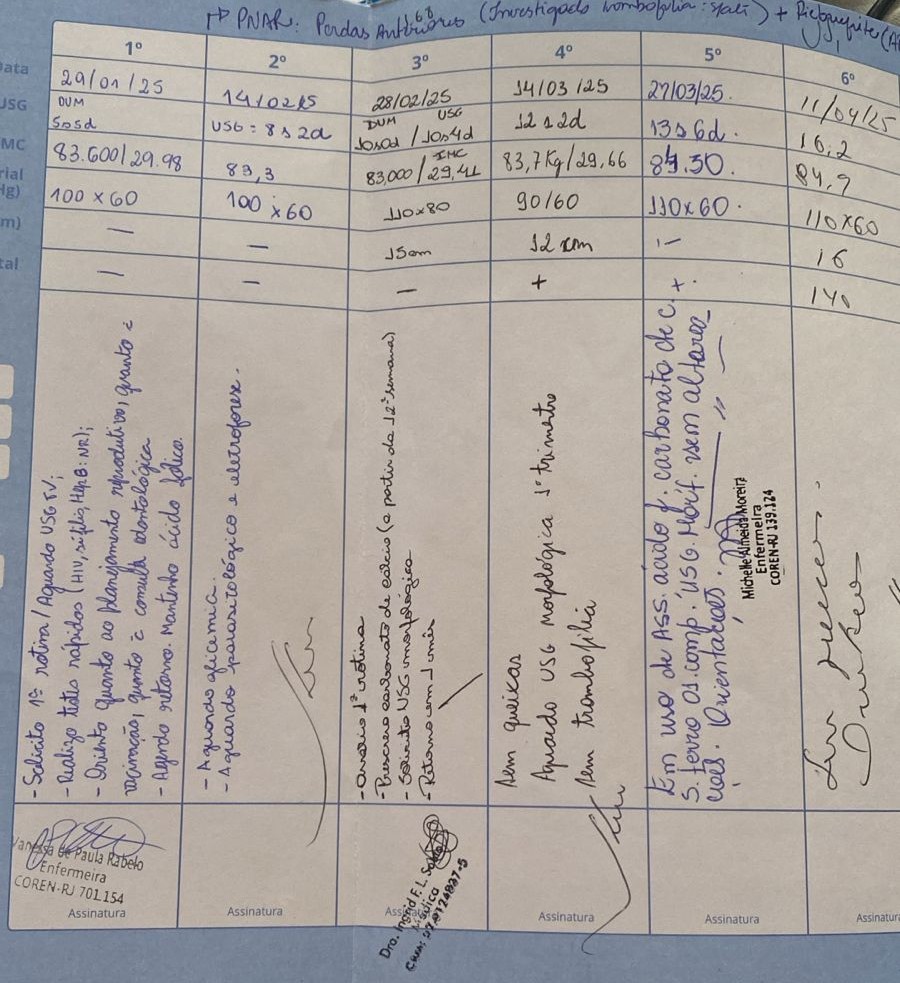 PNAR: Perdas Anteriores (Investigado trombofilia:
1º 2º 3º 4º 5º 6º
29/01/25 14/02/25 28/02/25 14/03/25 27/03/25. 11/04/25
USG DUM 5s5d USG = 8s2d DUM 10s0d / USG 10s4d 12s2d 13s6d. 16.2
83.600/29.98 83,3 83,000/29,41 IMC 83,7Kg/29,66 84.50 84,9
100 x 60 100 x 60 110x80 90/60 110x60. 110x60
— — 15cm 12 cm — 16
— — — + + 140
- Solicito 1ª rotina/Aguardo USG TV;
- Realizo testes rápidos (HIV, sífilis, HepB: NR);
- Oriento quanto ao planejamento reprodutivo, quanto à
vacinação, quanto à consulta odontológica
- Agendo retorno. Mantenho ácido fólico.
- Aguardo glicemia.
- Aguardo parasitológico e eletroforese.
- Avalio 1ª rotina
- Prescrevo carbonato de cálcio (a partir da 12ª semana)
- Solicito USG morfológica
- Retorno em 1 mês
Sem queixas
Aguardo USG morfológica 1º trimestre
Sem trombofilia
Em uso de Ass. ácido f. carbonato de c.
S. ferro 01 comp. USG. Morf. sem altera
ções. Orientações.
Michelle Almeida Moreira
Enfermeira
COREN-RJ 139.124
Vanessa de Paula Rabelo
Enfermeira
COREN-RJ 701.154
Dra. Ingrid F. L.
Médica
Assinatura Assinatura Assinatura Assinatura Assinatura